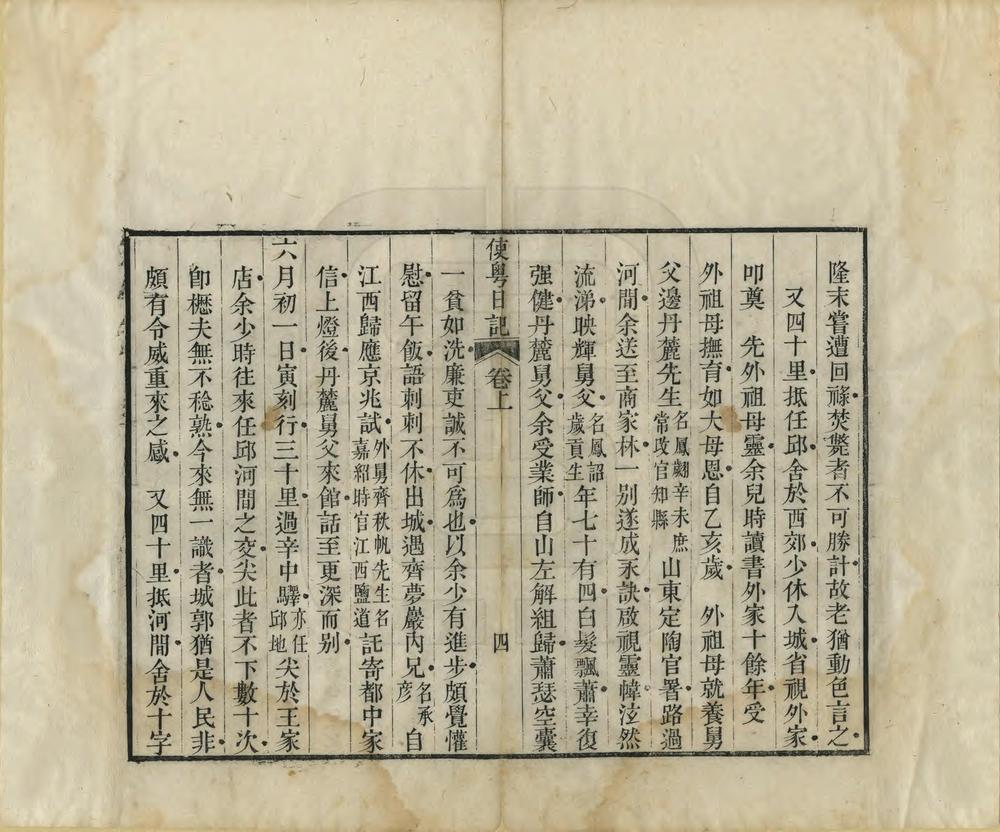 隆末嘗遭回祿焚斃者不可勝計故老猶動色言之
又四十里抵任邱舍於西郊少休入城省視外家
叩奠　先外祖母靈余兒時讀書外家十餘年受
外祖母撫育如大母恩自乙亥歲　外祖母就養舅
父邊丹麓先生名鳳翽辛未庶常改官知縣山東定陶官署路過
河間余送至商家林一别遂成永訣啟視靈幃泫然
流涕映輝舅父名鳳詔歲貢生年七十有四白髮飄蕭幸復
强健丹麓舅父余受業師自山左解組歸蕭瑟空囊
使粵日記　卷上　四
一貧如洗廉吏誠不可為也以余少有進步頗覺懽
慰留午飯語刺刺不休出城遇齊夢巖內兄名承彦自
江西歸應京兆試外舅齊秋帆先生名嘉紹時官江西鹽道託寄都中家
信上燈後丹麓舅父來館話至更深而别
六月初一日寅刻行三十里過辛中驛亦任邱地尖於王家
店余少時往來任邱河間之交尖此者不下數十次
卽樵夫無不稔熟今來無一識者城郭猶是人民非
頗有令威重來之感　又四十里抵河間舍於十字